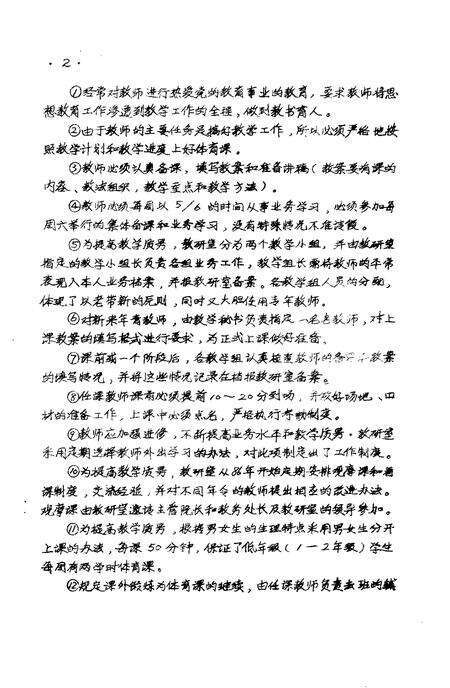 ·2·
①经常对教师进行热爱党的教育事业的教育，要求教师将思
想教育工作渗透到教学工作的全程，做到教书育人。
②由于教师的主要任务是搞好教学工作，所以必须严格地按
照教学计划和教学进度上好体育课。
③教师必须认真备课，填写教案和准备讲稿（教案要有课的
内容、教法组织，教学重点和教学方法）。
④教师必须每周以5/6的时间从事业务学习，必须参加每
周六举行的集体备课和业务学习，没有特殊情况不准请假。
⑤为提高教学质男，教研室分为两个教学小组，并由教研室
指定的教学小组长负责各组业务工作，教学组长需将教师的平常
表现入本人业务档案，并报教研室备案。各教学组人员的分配，
体现了以老带新的原则，同时又大胆使用青年教师。
⑥对新来年青教师，由教学秘书负责指定一名老教师，对上
课教案的填写格式进行要求，为正式上课做好准备。
⑦课前或一个阶段后，各教学组认真检查教师的备课和教案
的填写情况，并将这些情况记录在档报教研室备案。
⑧任课教师课前必须提前10～20分到场，并做好场地、口
材的准备工作，上课中必须点名，严格执行考勤制度。
⑨教师应加强进修，不断提高业务水平和教学质男。教研室
采用定期选择教师外出学习的办法，对此项制定出了工作制度。
⑩为提高教学质男，教研室从86年开始定期安排观摩课和看
课制度，交流经验，并对不同年令的教师提出相应的改进办法。
观摩课由教研室邀请主管院长和教务处长及教研室的领导参加。
⑪为提高教学质男，根据男女生的生理特点采用男女生分开
上课的办法，每课50分钟，保证了低年级（1—2年级）学生
每周有两学时体育课。
⑫规定课外锻炼为体育课的继续，由任课教师负责班的